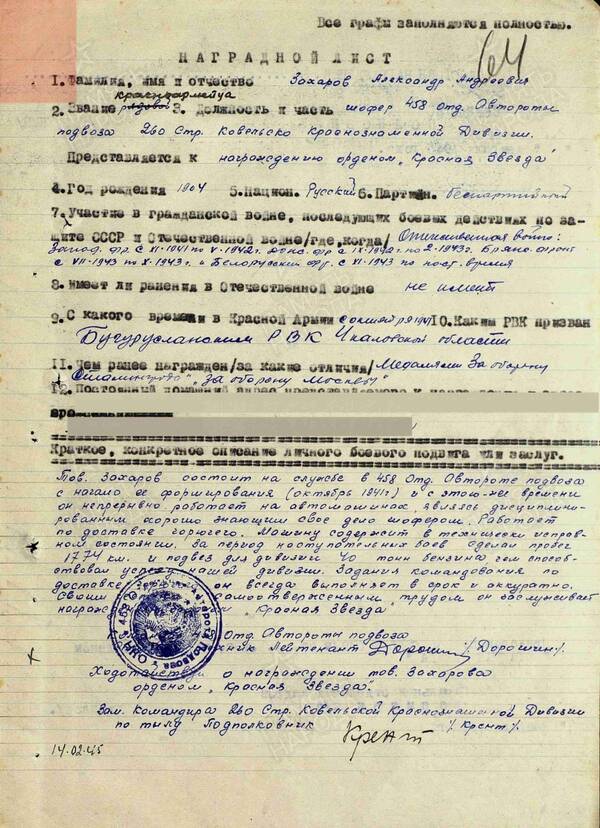 Все графы заполняются полностью.
64
НАГРАДНОЙ ЛИСТ
1. Фамилия, имя и отчество Захаров Александр Андреевич
красноармеец
2. Звание рядовой 3. Должность и часть шофер 458 отд. Автороты
подвоза 260 Стр. Ковельско Краснознаменной Дивизии.
Представляется к награждению орденом „Красная Звезда"
4. Год рождения 1904 5. Национ. Русский 6. Партийн. Беспартийный
7. Участие в гражданской войне, последующих боевых действиях по за-
щите СССР и Отечественной войне/где, когда/ Отечественная война:
Запад. фр. с XI-1941 по V-1942г. Донс. фр. с IX-1942г. по 2-1943г. Брянс. фронт
с VII-1943 по X-1943г. и Белорусский фр. с XI-1943 по наст. время
8. Имеет ли ранения в Отечественной войне не имеет
9. С какого времени в Красной Армии 1941 10. Каким РВК призван
Бугурусланским РВК Чкаловской области
11. Чем ранее награжден/за какие отличия/ Медалями За оборону
Сталинграда", За оборону Москвы"
12. Постоянный домашний адрес
Краткое, конкретное описание личного боевого подвига или заслуг.
Тов. Захаров состоит на службе в 458 Отд. Автороте подвоза
с начало ее формирования (октябрь 1941г) и с этого-же времени
он непрерывно работает на автомашинах, являясь дисциплини-
рованным хорошо знающим свое дело шофером. Работает
по доставке горючего. Машину содержит в технически исправ-
ном состоянии. За период наступательных боев сделал пробег
1774 км. и подвез для дивизии 40 тонн бензина чем способ-
ствовал успеху нашей дивизии. Задания командования по
доставке он всегда выполняет в срок и аккуратно.
Своим самоотверженным трудом он заслуживает
награжд „Красная Звезда"
Отд. Автороты подвоза
Техник Лейтенант Дорошин /Дорошин/.
Ходотайствую о награждении тов. Захарова
орденом „Красная Звезда".
Зам. Командира 260 Стр. Ковельской Краснознаменной Дивизии
по тылу Подполковник Крент /Крент/.
14.02.45